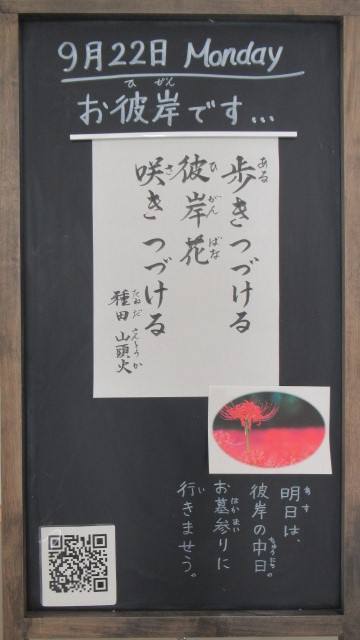 9月22日 Monday
お彼岸です...
歩きつづける
彼岸花
咲きつづける
種田 山頭火
明日は、
彼岸の中日。
お墓参りに
行きませう。